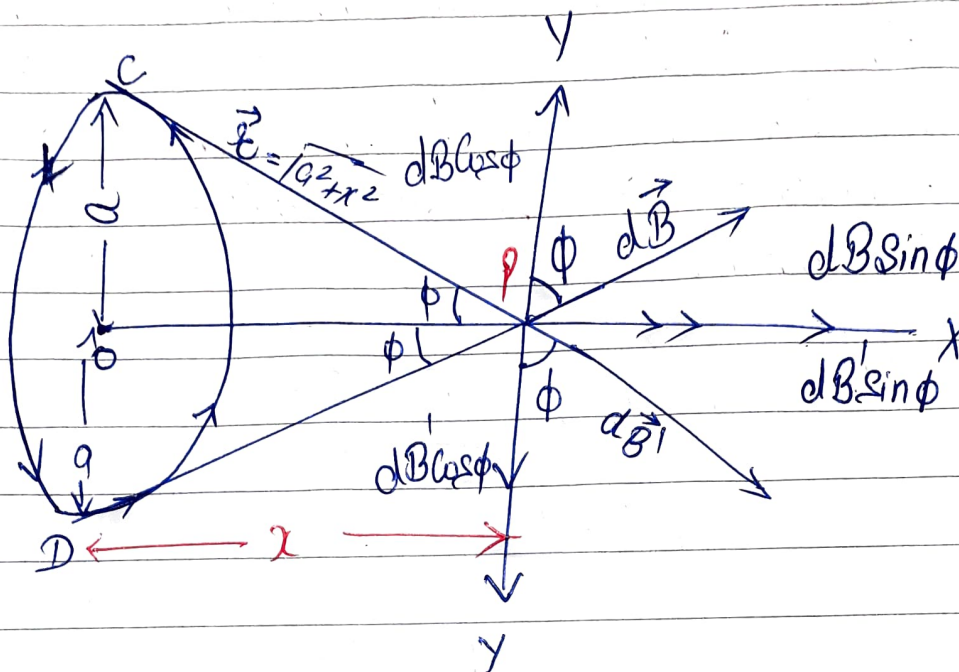 y
C
r⃗ = √a²+x²
dBCosφ
a
P
φ
dB⃗
dBSinφ
φ
O
φ
X
dB'Sinφ
φ
dB⃗'
a
dB'Cosφ
D
x
y